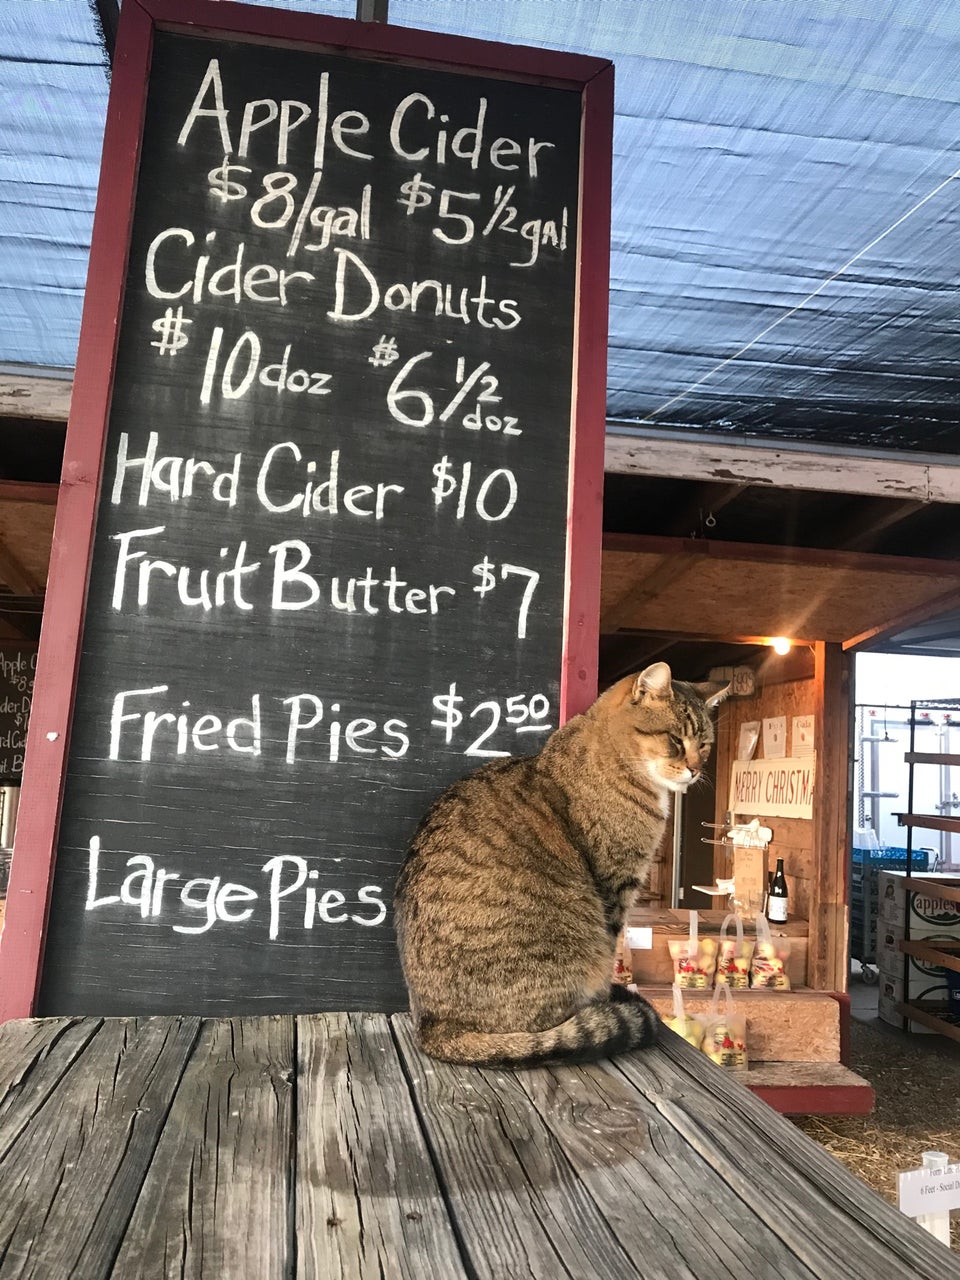 Apple Cider
$8/gal $5 1/2 gal
Cider Donuts
$10 doz $6 1/2 doz
Hard Cider $10
Fruit Butter $7
Fried Pies $2.50
Large Pies
MERRY CHRISTM
apples
6 Feet - Social D